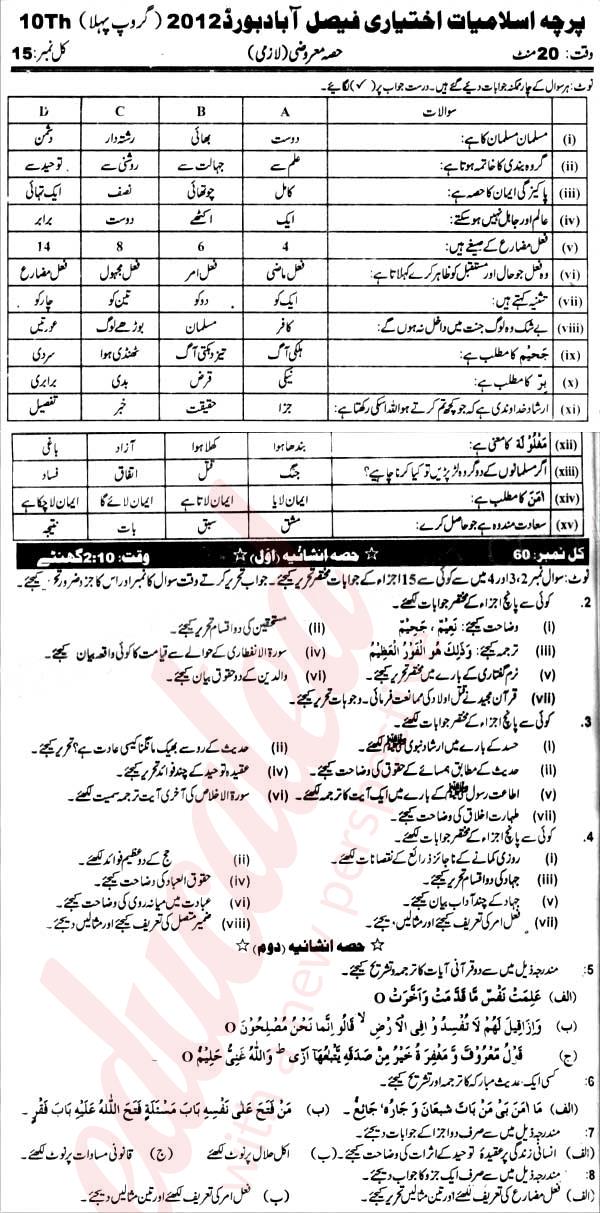 پرچہ اسلامیات اختیاری فیصل آباد بورڈ 2012 (گروپ پہلا) 10Th
وقت: 20 منٹ حصہ معروضی (لازمی) کل نمبر: 15
نوٹ: ہر سوال کے چار ممکنہ جوابات دیئے گئے ہیں۔ درست جواب پر (✓) لگائیے۔
سوالات A B C D
(i) مسلمان مسلمان کا ہے: دوست بھائی رشتہ دار دشمن
(ii) گروہ بندی کا خاتمہ ہوتا ہے: علم سے جہالت سے روشنی سے توحید سے
(iii) پاکیزگی ایمان کا حصہ ہے: کامل چوتھائی نصف ایک تہائی
(iv) عالم اور جاہل نہیں ہو سکتے: ایک اکٹھے دوست برابر
(v) فعل مضارع کے صیغے ہیں: 4 6 8 14
(vi) وہ فعل جو حال اور مستقبل کو ظاہر کرے کہلاتا ہے: فعل ماضی فعل امر فعل مجہول فعل مضارع
(vii) تثنیہ کہتے ہیں: ایک کو دو کو تین کو چار کو
(viii) بے شک وہ لوگ جنت میں داخل نہ ہوں گے: کافر مسلمان بوڑھے لوگ عورتیں
(ix) جَحِیْم کا مطلب ہے: ہلکی آگ تیز دہکتی آگ ٹھنڈی ہوا سردی
(x) بِرّ کا مطلب ہے: نیکی قرض بدی برابری
(xi) ارشاد خداوندی ہے کہ جو کچھ تم کرتے ہو اللہ اسکی رکھتا ہے: جزا حقیقت خبر تفصیل
(xii) مَغْلُوْلَۃ کا معنی ہے: بندھا ہوا کھلا ہوا آزاد باغی
(xiii) اگر مسلمانوں کے دو گروہ لڑ پڑیں تو کیا کرنا چاہیے؟ جنگ قتل اتفاق فساد
(xiv) اٰمَنَ کا مطلب ہے: ایمان لایا ایمان لاتا ہے ایمان لائے گا ایمان لا چکا ہے
(xv) سعادت مند وہ ہے جو حاصل کرے: مشق سبق بات نتیجہ
کل نمبر: 60 ☆ حصہ انشائیہ (اول) ☆ وقت: 2:10 گھنٹے
نوٹ: سوال نمبر 2، 3 اور 4 میں سے کوئی سے 15 اجزاء کے جوابات مختصر تحریر کیجئے۔ جواب تحریر کرتے وقت سوال کا نمبر اور اس کا جزو ضرور تحریر کیجئے۔
2. کوئی سے پانچ اجزاء کے مختصر جوابات لکھئے۔
(i) وضاحت کیجئے: نَعِیْمٌ، جَحِیْمٌ (ii) مستحقین کی دو اقسام تحریر کیجئے۔
(iii) ترجمہ کیجئے: وَذٰلِکَ هُوَ الْفَوْزُ الْعَظِیْمُ (iv) سورۃ الانفطار کی حوالے سے قیامت کا کوئی واقعہ بیان کیجئے۔
(v) نرم گفتاری کے بارے میں مختصر تحریر کیجئے۔ (vi) والدین کے دو حقوق بیان کیجئے۔
(vii) قرآن مجید نے قتل اولاد کی ممانعت فرمائی۔ وجوہات تحریر کیجئے۔
3. کوئی سے پانچ اجزاء کے مختصر جوابات لکھئے۔
(i) حسد کے بارے میں ارشاد نبوی ﷺ لکھئے۔ (ii) حدیث کے رو سے بھیک مانگنا کیسی عادت ہے؟ تحریر کیجئے۔
(iii) حدیث کے مطابق ہمسائے کے حقوق کی وضاحت کیجئے۔ (iv) عقیدہ توحید کے چند فوائد تحریر کیجئے۔
(v) اطاعت رسول ﷺ کے بارے میں ایک آیت کا ترجمہ لکھئے۔ (vi) سورۃ الاخلاص کی آخری آیت ترجمہ سمیت لکھئے۔
(vii) طہارت اخلاق کی وضاحت کیجئے۔
4. کوئی سے پانچ اجزاء کے مختصر جوابات لکھئے۔
(i) روزی کمانے کے ناجائز ذرائع کے نقصانات لکھئے۔ (ii) حج کے دو عظیم فوائد لکھئے۔
(iii) جہاد کی دو اقسام تحریر کیجئے۔ (iv) حقوق العباد کی وضاحت کیجئے۔
(v) جہاد کے چند آداب بیان کیجئے۔ (vi) عبادت میں میانہ روی کی وضاحت کیجئے۔
(vii) فعل امر کی تعریف کیجئے اور مثالیں دیجئے۔ (viii) ضمیر متصل کی تعریف کیجئے اور مثالیں دیجئے۔
☆ حصہ انشائیہ (دوم) ☆
5: مندرجہ ذیل میں سے دو قرآنی آیات کا ترجمہ و تشریح کیجئے۔
(الف) عَلِمَتْ نَفْسٌ مَّا قَدَّمَتْ وَاَخَّرَتْ O
(ب) وَاِذَا قِیْلَ لَهُمْ لَا تُفْسِدُوْا فِی الْاَرْضِ لا قَالُوْا اِنَّمَا نَحْنُ مُصْلِحُوْنَ O
(ج) قَوْلٌ مَّعْرُوْفٌ وَّ مَغْفِرَةٌ خَیْرٌ مِّنْ صَدَقَةٍ یَّتْبَعُهَا اَذًی ط وَاللّٰهُ غَنِیٌّ حَلِیْمٌ O
6: کسی ایک حدیث مبارکہ کا ترجمہ اور تشریح کیجئے۔
(الف) مَا اٰمَنَ بِیْ مَنْ بَاتَ شَبْعَانَ وَ جَارُہٗ جَائِعٌ۔ (ب) مَنْ فَتَحَ عَلٰی نَفْسِهٖ بَابَ مَسْئَلَةٍ فَتَحَ اللّٰهُ عَلَیْهِ بَابَ فَقْرٍ۔
7: مندرجہ ذیل میں سے صرف دو اجزاء کے جوابات لکھئے۔
(الف) انسانی زندگی پر عقیدۂ توحید کے اثرات کی وضاحت کیجئے۔ (ب) اکل حلال پر نوٹ لکھئے (ج) قانونی مساوات پر نوٹ لکھئے۔
8: مندرجہ ذیل میں سے صرف ایک جزو کا جواب دیجئے۔
(الف) فعل مضارع کی تعریف لکھئے اور تین مثالیں دیجئے۔ (ب) فعل امر کی تعریف لکھئے اور تین مثالیں دیجئے۔
edulated
with a new perspective